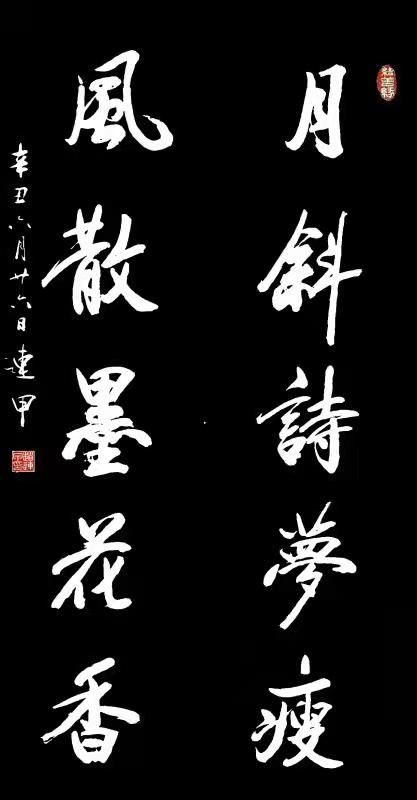 月斜詩夢瘦
風散墨花香
辛丑六月廿六日連甲